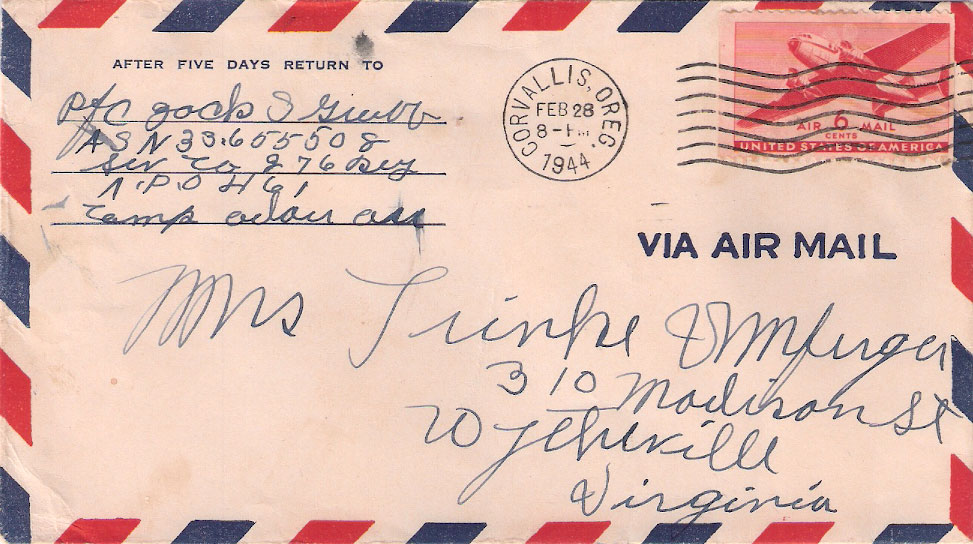 AFTER FIVE DAYS RETURN TO
Pfc Jack S Grubb
ASN 33.655508
Ser Co 276 Reg
A.P.O 461
Camp Adair
CORVALLIS, OREG.
FEB 28
8-PM
1944
AIR 6 MAIL
CENTS
UNITED STATES OF AMERICA
VIA AIR MAIL
Mrs
310 Madison St
Wytheville
Virginia